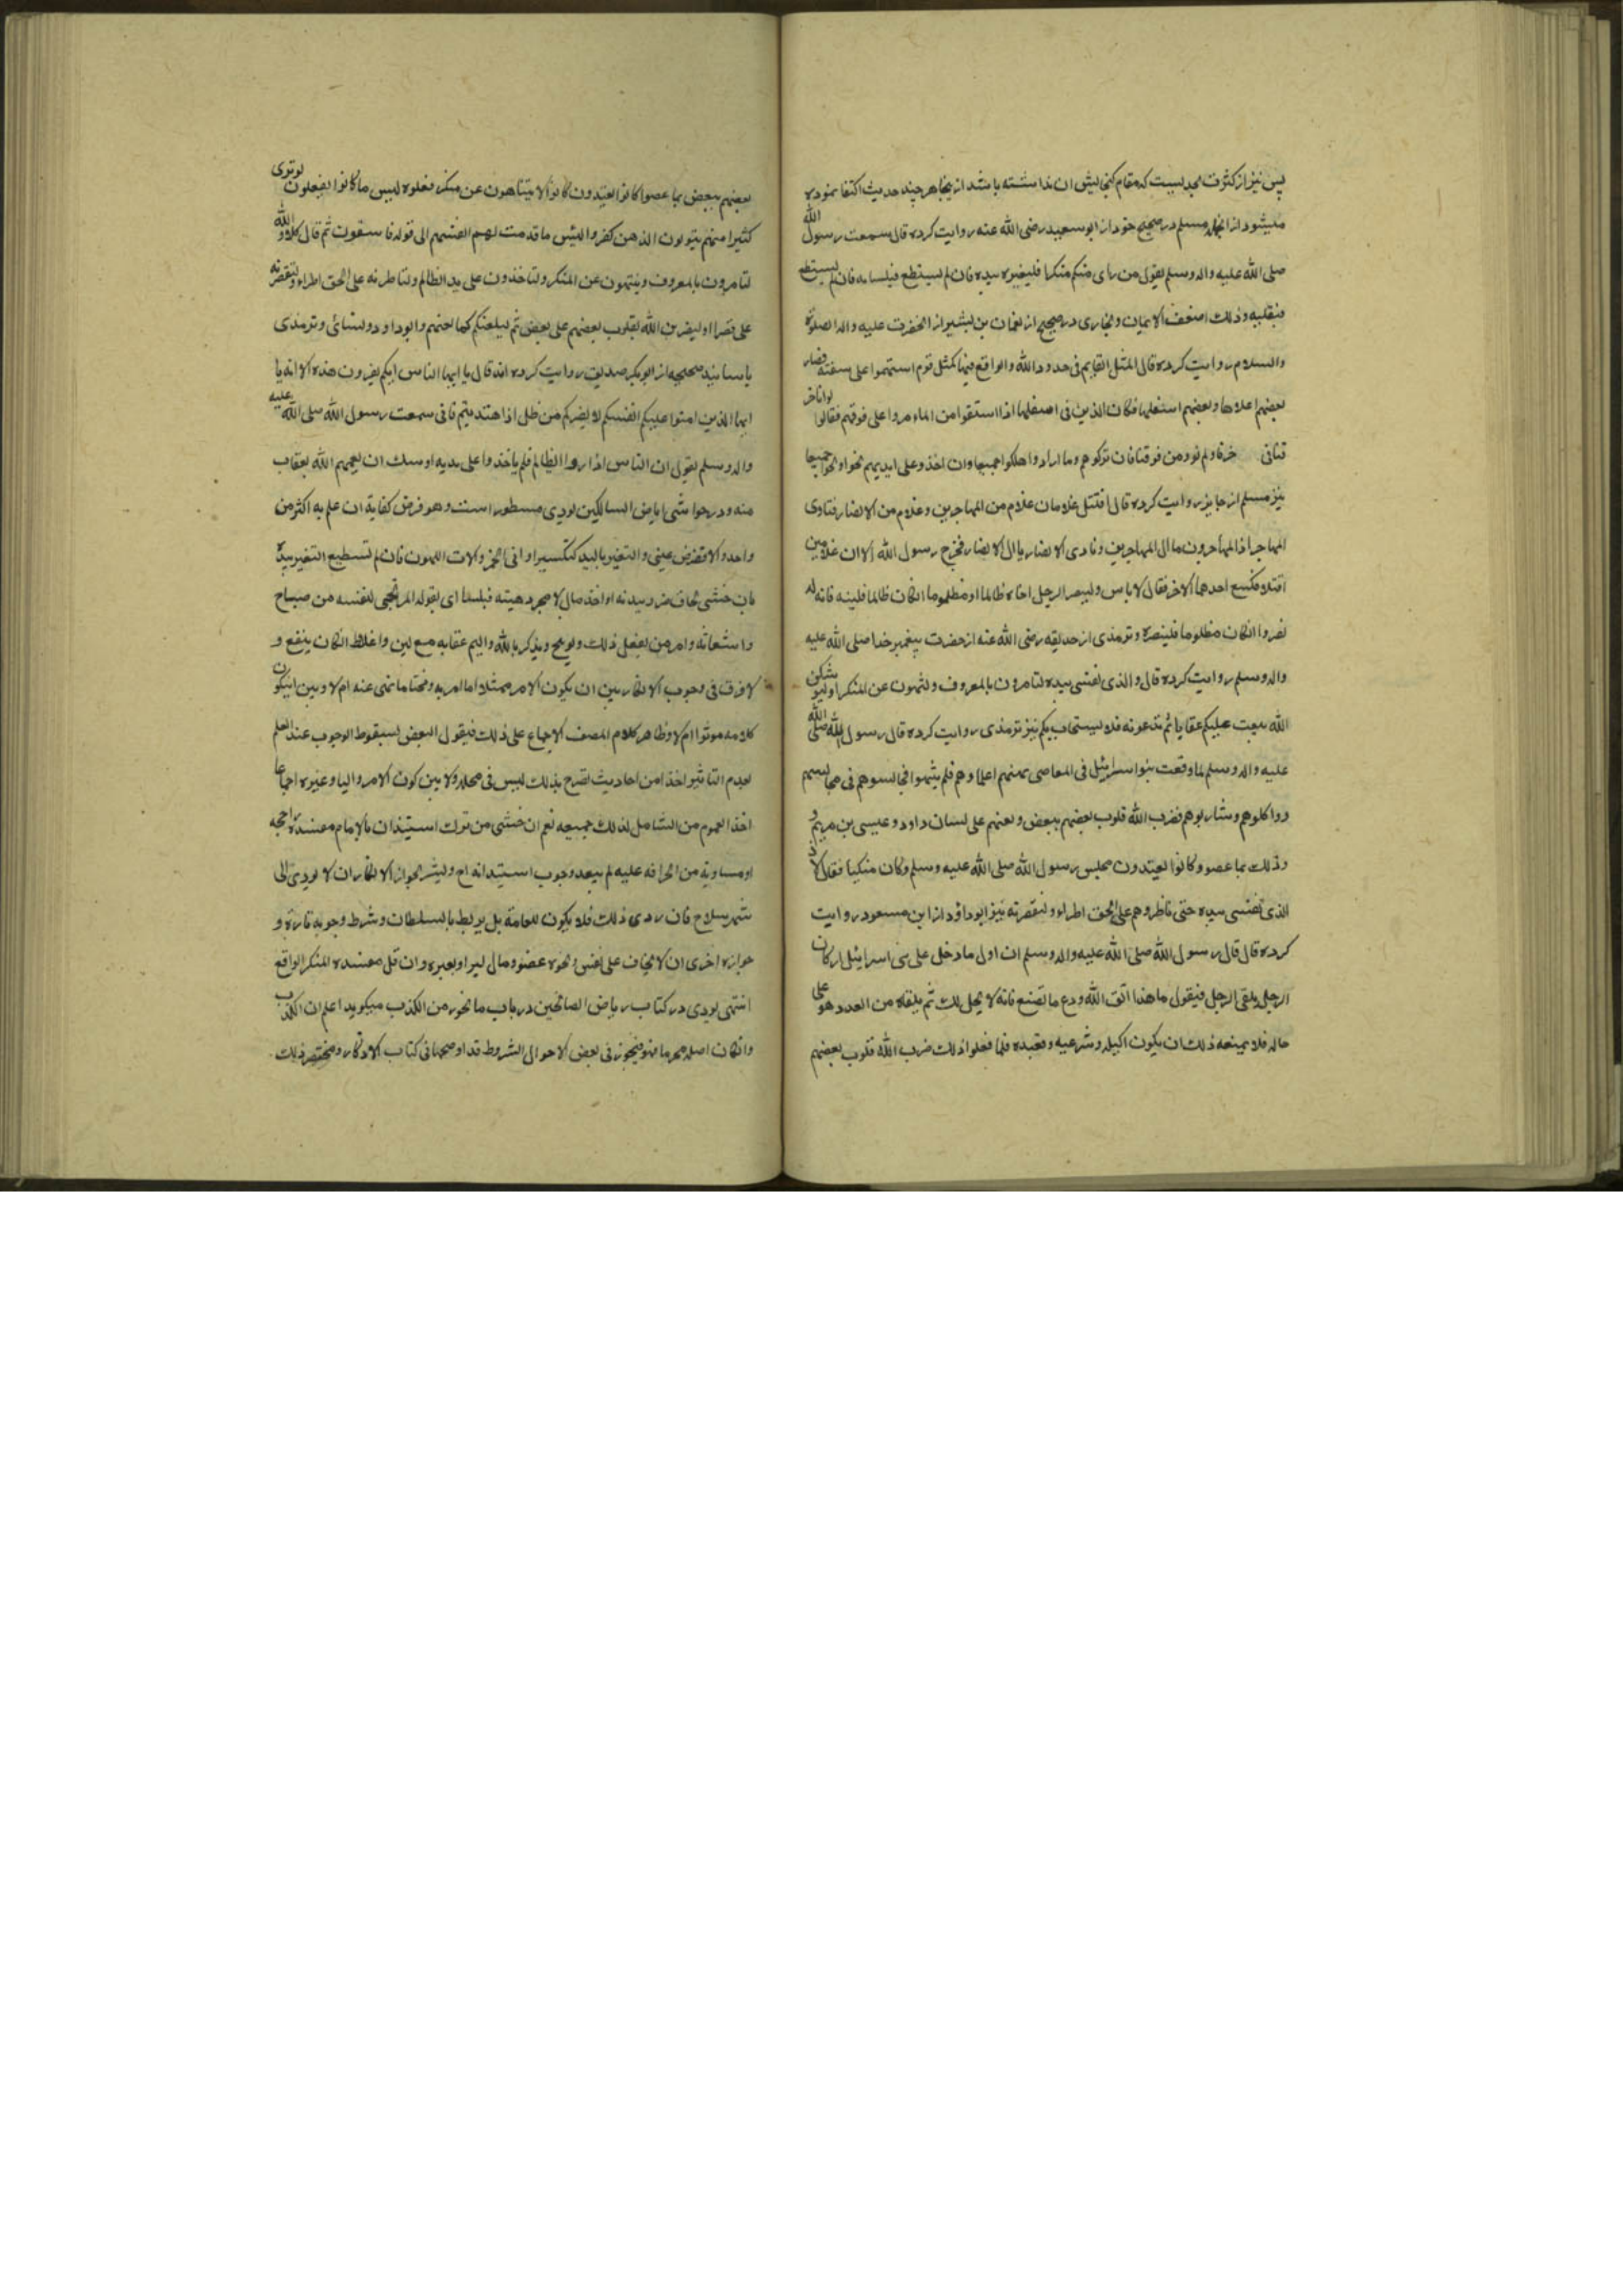 پس نیز از کثرت بحدیست که مقام گنجایش ان نداشته باشد از ینجا هر چند حدیث اکتفا نموده
میشود از انجمله مسلم در صحیح خود از ابو سعید رضی الله عنه روایت کرده قال سمعت رسول الله
صلی الله علیه واله وسلم یقول من رای منکم منکرا فلیغیره بیده فان لم یستطع فبلسانه فان لم یستطع
فبقلبه وذلك اضعف الایمان و بخاری در صحیح از نعمان بن بشیر از انحضرت علیه واله الصلوة
والسلام روایت کرده قال المثل القایم فی حدود الله والواقع فیها کمثل قوم استهموا علی سفینة فصار
بعضهم اعلاها وبعضهم اسفلها فکان الذین فی اسفلها اذا استقوا من الماء مروا علی فوقهم فقالوا لو انا خر
قنا فی خرقا ولم نوذ من فوقنا فان ترکوهم وما ارادوا هلکوا جمیعا وان اخذوا علی ایدیهم نجوا ونجوا جمیعا
نیز مسلم از جابر روایت کرده قال اقتتل غلامان غلام من المهاجرین وغلام من الانصار فنادی
المهاجر اذا المهاجرون یا ال المهاجرین ونادی الانصار یا ال الانصار فخرج رسول الله الا ان غلامین
اقتتلا فکسع احدهما الاخر فقال لا باس ولینصر الرجل اخاه ظالما او مظلوما انکان ظالما فلینه فانه له
نصر وانکان مظلوما فلینصره و ترمذی از حذیفه رضی الله عنه از حضرت پیغمبر خدا صلی الله علیه
واله وسلم روایت کرده قال والذی نفسی بیده لتامرون بالمعروف ولتنهون عن المنکر او لیوشکن
الله یبعث علیکم عقابا ثم تدعونه فلا یستجاب بکم نیز ترمذی روایت کرده قال رسول الله صلی الله
علیه واله وسلم لما وقعت بنوا سرائیل فی المعاصی نهتهم علماوهم فلم ینتهوا فجالسوهم فی مجالسهم
وواکلوهم وشاربوهم فضرب الله قلوب بعضهم ببعض ولعنهم علی لسان داود وعیسی بن مریم و
ذلك بما عصو وکانوا یعتدون مجلس رسول الله صلی الله علیه وسلم وکان متکیا فقال لا و
الذی نفسی بیده حتی تاطروهم علی الحق اطراء ولتقصرنه نیز ابو داؤد از ابن مسعود روایت
کرده قال قال رسول الله صلی الله علیه واله وسلم ان اول ما دخل علی بنی اسرائیل ان کان
الرجل یلقی الرجل فیقول ما هذا اتق الله ودع ما تصنع فانه لا یحل لك ثم یلقاه من الغد وهو علی
حاله فلا یمنعه ذلك ان یکون اکیله وشریبه وقعیده فلما فعلوا ذلك ضرب الله قلوب بعضهم
بعضهم ببعض بما عصوا کانوا یعتدون کانوا لا یتناهون عن منکر فعلوه لبیس ما کانوا یفعلون لو تری
کثیرا منهم یتولون الذین کفروا لبئس ما قدمت لهم انفسهم الی قوله فاسقون ثم قال کلا والله
لتامرون بالمعروف وینتهون عن المنکر ولتاخذون علی ید الظالم ولتاطرنه علی الحق اطراء ولتقصرنه
علی قصرا او لیضربن الله بقلوب بعضهم علی بعض ثم لیلعنکم کما لعنهم وابو داود ونسائی و ترمذی
باسانید صحیحه از ابو بکر صدیق روایت کرده انه قال یا ایها الناس انکم تقرون هذه الایة یا
ایها الذین امنوا علیکم انفسکم لا یضرکم من ضل اذا اهتدیتم فانی سمعت رسول الله صلی الله علیه
واله وسلم یقول ان الناس اذا روا الظالم فلم یاخذوا علی یدیه اوشك ان یعمهم الله بعقاب
منه و در حواشی ریاض السالکین نودی مسطور است وهو فرض کفایة ان علم به اکثر من
واحد والا ففرض عینی والتغیر بالید کتکسیر اوانی الخمر والات اللهون فان لم تستطیع التغیر بیده
بان خشی لحاق ضرر ببدنه او اخذ مال لا مجرد هیبته فبلسانه ای بقوله المرتجی لنفسه من صیاح
واستغاثه وامر من یفعل ذلك وتوبیخ وتذکیر بالله والیم عقابه مع لین واغلاظ انکان ینفع و
لا فرق فی وجوب الانکار بین ان یکون الامر ممتثلا لما امر به ومجتنبا ما نهی عنه ام لا وبین ان یکون
کلامه موثرا ام لا وظاهر کلام المصنف الاجماع علی ذلك فیقول البعض لسقوط الوجوب عند العلم
بعدم التاثیر اخذا من احادیث تصرح بذلك لیس فی محله ولا بین کون الامر والیا وغیره اجماعا
اخذا لعموم من الشامل لذلك جمیعه نعم ان خشی من ترك استیذان الامام مفسدة راجحه
او مساویة من انحرافه علیه لم یبعد وجوب استیذانه اح ویشترط لجواز الانکار ان لا یودی الی
شهر سلاح فان ردی ذلك فلا یکون للعامة بل یربط بالسلطان وشرط وجوبه تارة و
جوازه اخری ان لا یخاف علی نفس ونحوه عضو ومال لیرا وبعیره وان قل مفسده المنکر الواقع
انتهی نودی در کتاب ریاض الصالحین در باب ما یجوز من الکذب میگوید اعلم ان الکذب
وانکان اصله محرما فیجوز فی بعض الاحوال بشروط قد اوضحها فی کتاب الاذکار ومختصر ذلك